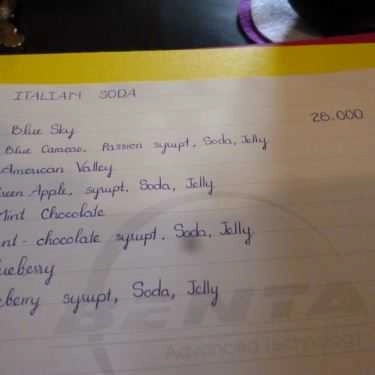 ITALIAN SODA
Blue Sky 28.000
Blue Caracao, Passion syrupt, Soda, Jelly
American Valley
een Apple, syrupt. Soda, Jelly
Mint Chocolate
nt - chocolate syrupt. Soda, Jelly
ueberry
eberry syrupt, Soda, Jelly
BENTA
Advanced technology